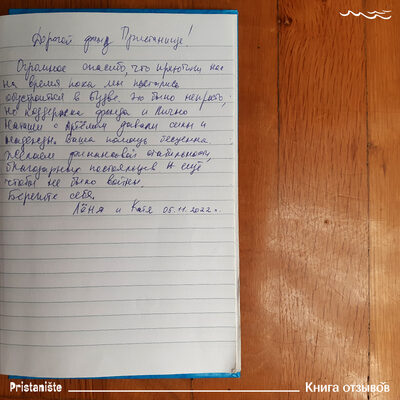 Дорогой фонд Пристанище!
Огромное спасибо, что приютили нас
на время, пока мы пытались
обустроится в Будве. Это было непросто,
но поддержка фонда и лично
с Артёмом давали силы и
надежду. Ваша помощь бесценна.
Желаем финансовой стабильности,
благодарных постояльцев и ещё
чтобы не было войны.
Берегите себя.
Лёня и Катя 05.11.2022г.
Pristanište
Книга отзывов